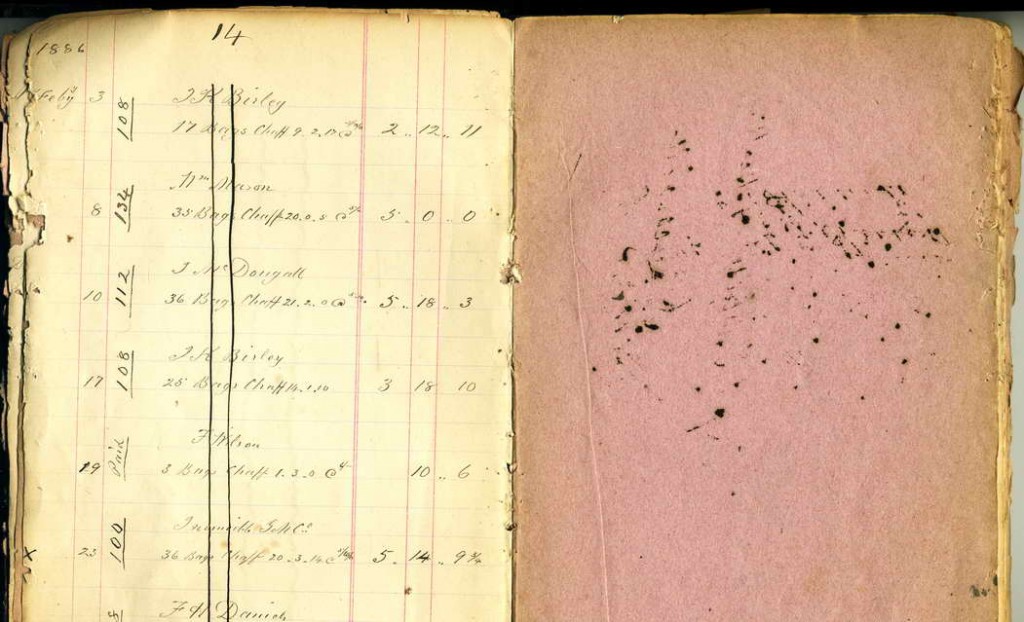 14
1886
Feby 3 108 J H Birley
17 Bags Chaff 9. 2. 2 .. 12 .. 11
Wm Mason
8 134 35 Bags Chaff 20. 0. 5 .. 0 .. 0
J McDougall
10 112 36 Bags Chaff 21. 2. 0 @ 5 .. 18 .. 3
J H Birley
17 108 25 Bags Chaff 14. 1. 10 3 18 10
F Wilson
19 Paid 3 Bags Chaff 1. 3. 0 @ 10 .. 6
x 23 100 36 Bags Chaff 20. 3. 14 @ 5 .. 14 .. 9
F W Daniels